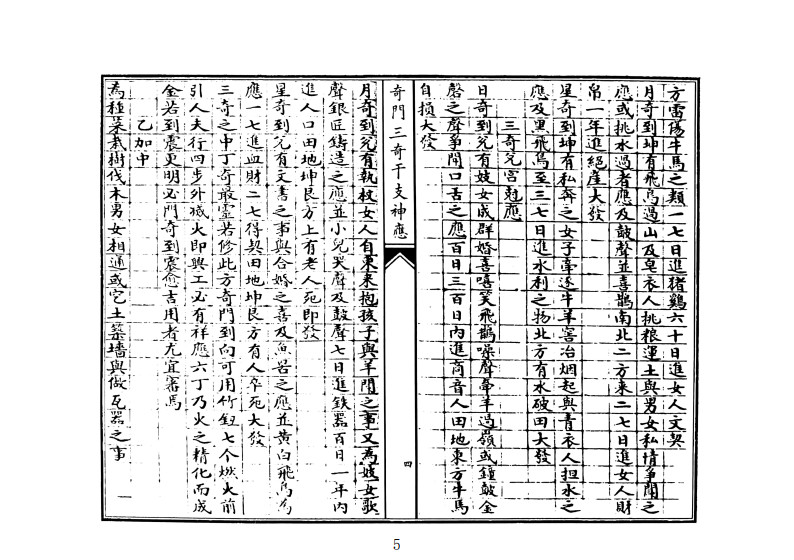 方雷傷牛馬之類一七日進猪鷄六十日進女人文契
月奇到坤有飛鳥過山及皂衣人挑粮運土與男女私情爭鬧之
應或挑水過者應及鼓聲並喜鵲南北二方來二七日進女人財
帛一年進絕產大發
星奇到坤有私奔之女子牽逐牛羊窰冶烟起與青衣人担水之
應及黑飛鳥至三七日進水利之物北方有水破田大發
三奇兌宮尅應
日奇到兌有妓女成群婚喜嘻笑飛鵲噪聲牽羊過嶺或鐘皷金
磬之聲爭鬧口舌之應百日三百日內進商音人田地東方牛馬
自損大發
奇門三奇干支神應
四
月奇到兌有執杖女人自東來抱孩子與羊鬧之事又為妓女歌
聲銀匠鑄造之應並小兒哭聲及鼓聲七日進鉄器百日一年內
進人口田地坤艮方上有老人死即發
星奇到兌有文書之事與合婚之喜及魚罟之應並黃白飛鳥為
應一七進血財二七得契田地坤艮方有人卒死大發
三奇之中丁奇最靈若修此方奇門到向可用竹釘七个燃火前
引人夫行四步外滅火即與工必有祥應六丁乃火之精化而成
金若到震更明必門奇到震愈吉用者尤宜審焉
乙加中
為種菜栽樹伐木男女相通或它土築墻與做瓦器之事
一
5